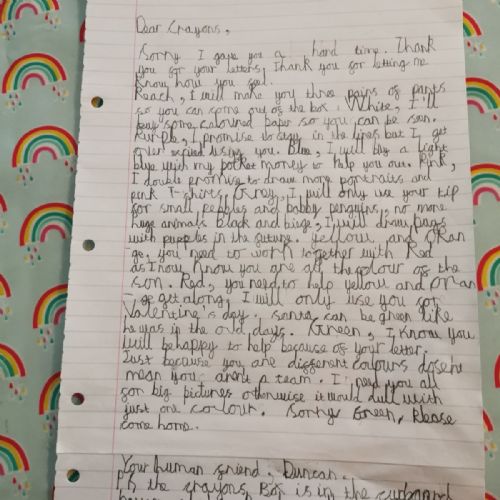 Dear Crayons,
Sorry I gave you a hard time. Thank
you for your letters, Thank you for letting me
know how you feel.
Peach, I will make you three pairs of pants
so you can come out of the box. White, I'll
buy some coloured paper so you can be seen.
Purple, I promise to stay in the lines but I get
over excited using you. Blue, I will buy a light
blue with my pocket money to help you out. Pink,
I double promise to draw more portraits and
pink T-shirts. Grey, I will only use your tip
for small pebbles and babby penguins, no more
huge animals. Black and bige, I will draw pugs
with in the future. Yellow and ORan
ge, you need to work together with Red
as I now know you are all the colour of the
son. Red, you need to help yellow and oran
ge get along, I will only use you for
Valentine's day. santa can be green like
he was in the old days. Green, I know you
will be happy to help because of your letter.
Just because you are different colours dosent
mean you arent a team. I need you all
for big pictures otherwise it would dull with
just one colour. Sorry Green, Please
come home.
Your human friend. Duncan.
Ps the crayons Box is in the cupboard